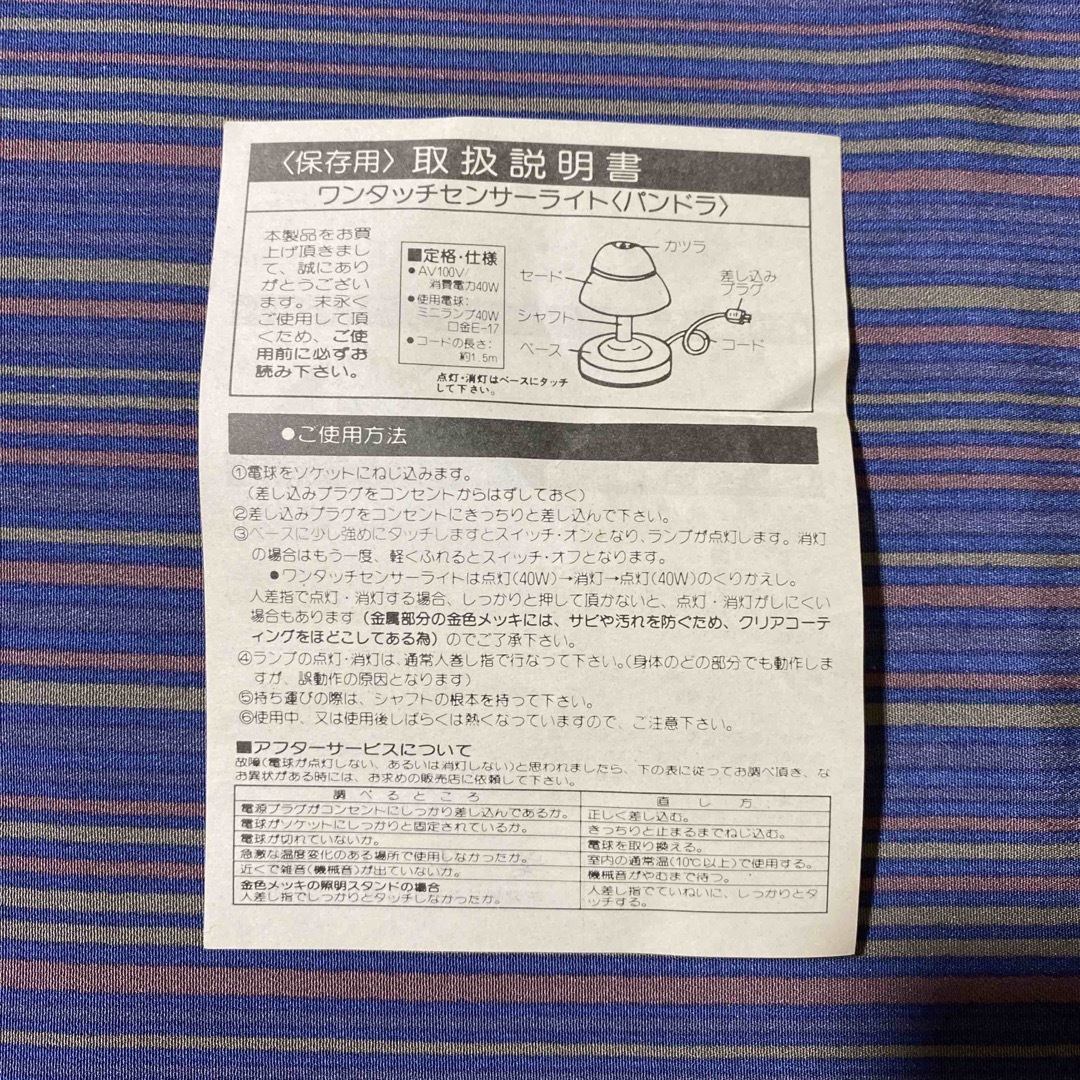 〈保存用〉取扱説明書
ワンタッチセンサーライト〈パンドラ〉
本製品をお買
上げ頂きまし
て、誠にあり
がとうござい
ます。末永く
ご使用して頂
くため、ご使
用前に必ずお
読み下さい。
■定格・仕様
●AV100V/
消費電力40W
●使用電球:
ミニランプ40W
口金E-17
●コードの長さ:
約1.5m
カツラ
セード
差し込み
プラグ
シャフト
コード
ベース
点灯・消灯はベースにタッチ
して下さい。
●ご使用方法
①電球をソケットにねじ込みます。
(差し込みプラグをコンセントからはずしておく)
②差し込みプラグをコンセントにきっちりと差し込んで下さい。
③ベースに少し強めにタッチしますとスイッチ・オンとなり、ランプが点灯します。消灯
の場合はもう一度、軽くふれるとスイッチ・オフとなります。
●ワンタッチセンサーライトは点灯(40W)→消灯→点灯(40W)のくりかえし。
人差指で点灯・消灯する場合、しっかりと押して頂かないと、点灯・消灯がしにくい
場合もあります(金属部分の金色メッキには、サビや汚れを防ぐため、クリアコーテ
ィングをほどこしてある為)のでご了承下さい。
④ランプの点灯・消灯は、通常人巻し指で行なって下さい。(身体のどの部分でも動作しま
すが、誤動作の原因となります)
⑤持ち運びの際は、シャフトの根本を持って下さい。
⑥使用中、又は使用後しばらくは熱くなっていますので、ご注意下さい。
■アフターサービスについて
故障(電球が点灯しない、あるいは消灯しない)と思われましたら、下の表に従ってお調べ頂き、な
お異状がある時には、お求めの販売店に依頼して下さい。
調べるところ 直し方
電源プラグがコンセントにしっかり差し込んであるか。 正しく差し込む。
電球がソケットにしっかりと固定されているか。 きっちりと止まるまでねじ込む。
電球が切れていないか。 電球を取り換える。
急激な温度変化のある場所で使用しなかったか。 室内の通常温(10℃以上)で使用する。
近くで雑音(機械音)が出ていないか。 機械音がやむまで待つ。
金色メッキの照明スタンドの場合
人差し指でしっかりとタッチしなかったか。 人差し指でていねいに、しっかりとタ
ッチする。